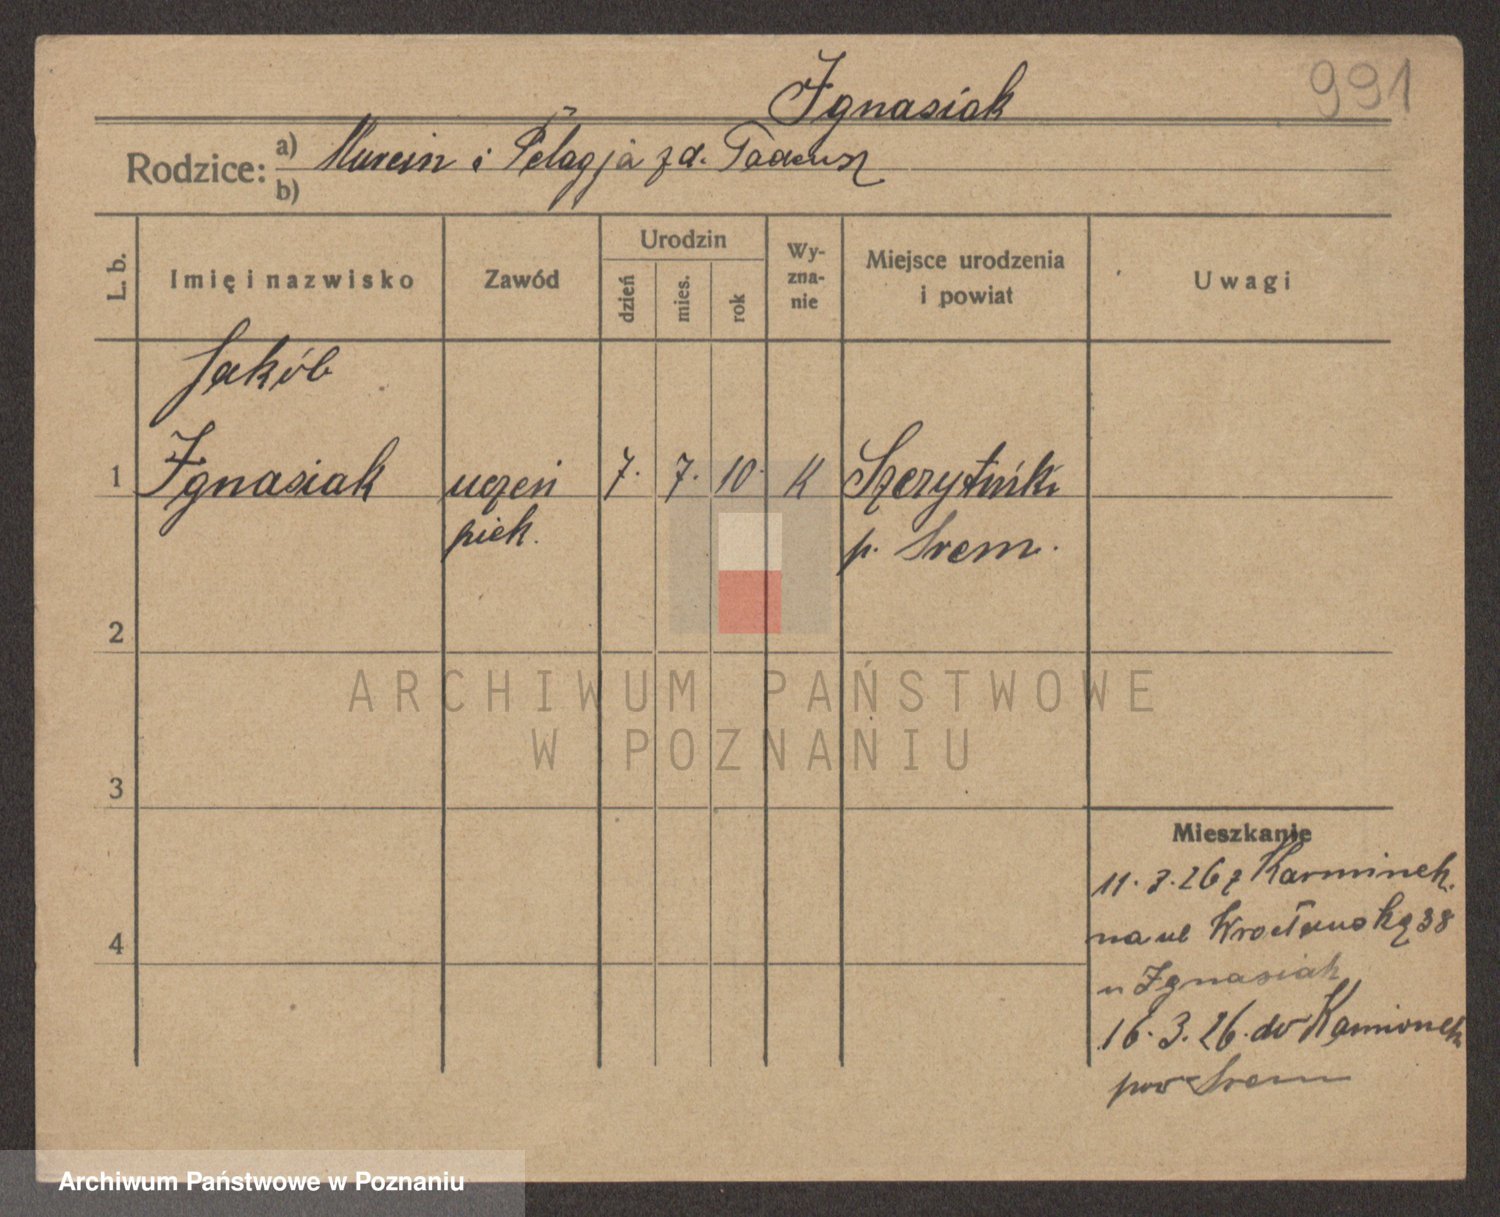 Ignasiak 991
Rodzice: a) Marcin i Pelagja zd. Tadeusz
b)
L. b. Imię i nazwisko Zawód Urodzin dzień mies. rok Wy-zna-nie Miejsce urodzenia i powiat Uwagi
Jakób
1 Ignasiak uczeń 7. 7. 10. K
piek. p. Śrem.
2
ARCHIWUM PAŃSTWOWE
W POZNANIU
3
Mieszkanie
11. 3. 26 z
na ul Wrocławską 38
4
u Ignasiak
16. 3. 26. do Kamionek
pow Śrem
Archiwum Państwowe w Poznaniu